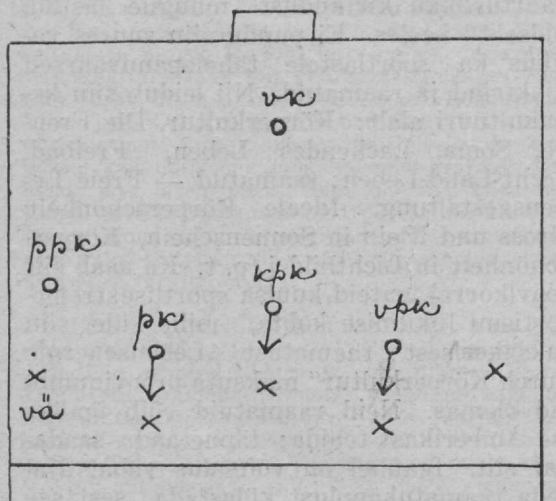 vk
ppk
kpk
pk
vpk
vä